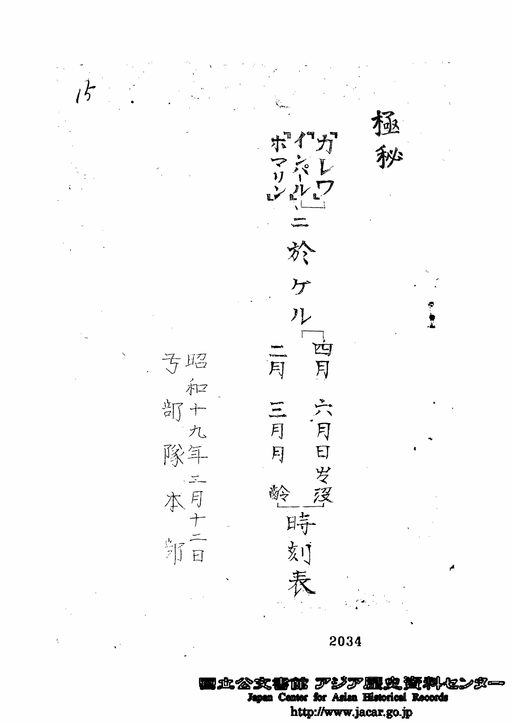 極秘
「カレワ」
「インパール」、
「ホマリン」
ニ於ケル
四月 六月日出没
二月 三月月齢
時刻表
昭和十九年二月十二日
弓部隊本部
15
2034
国立公文書館 アジア歴史資料センター
Japan Center for Asian Historical Records
http://www.jacar.go.jp